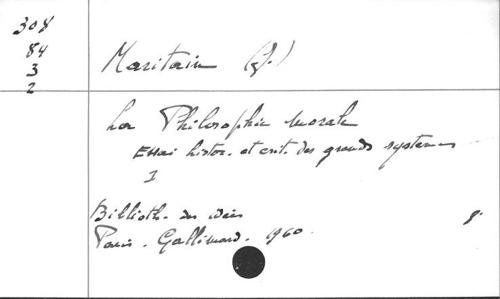 308
84
3
2
Maritain (J.)
La Philosophie morale
Essai histor. et crit. des grands systemes
I
Biblioth. des idées
Paris. Gallimard. 1960.